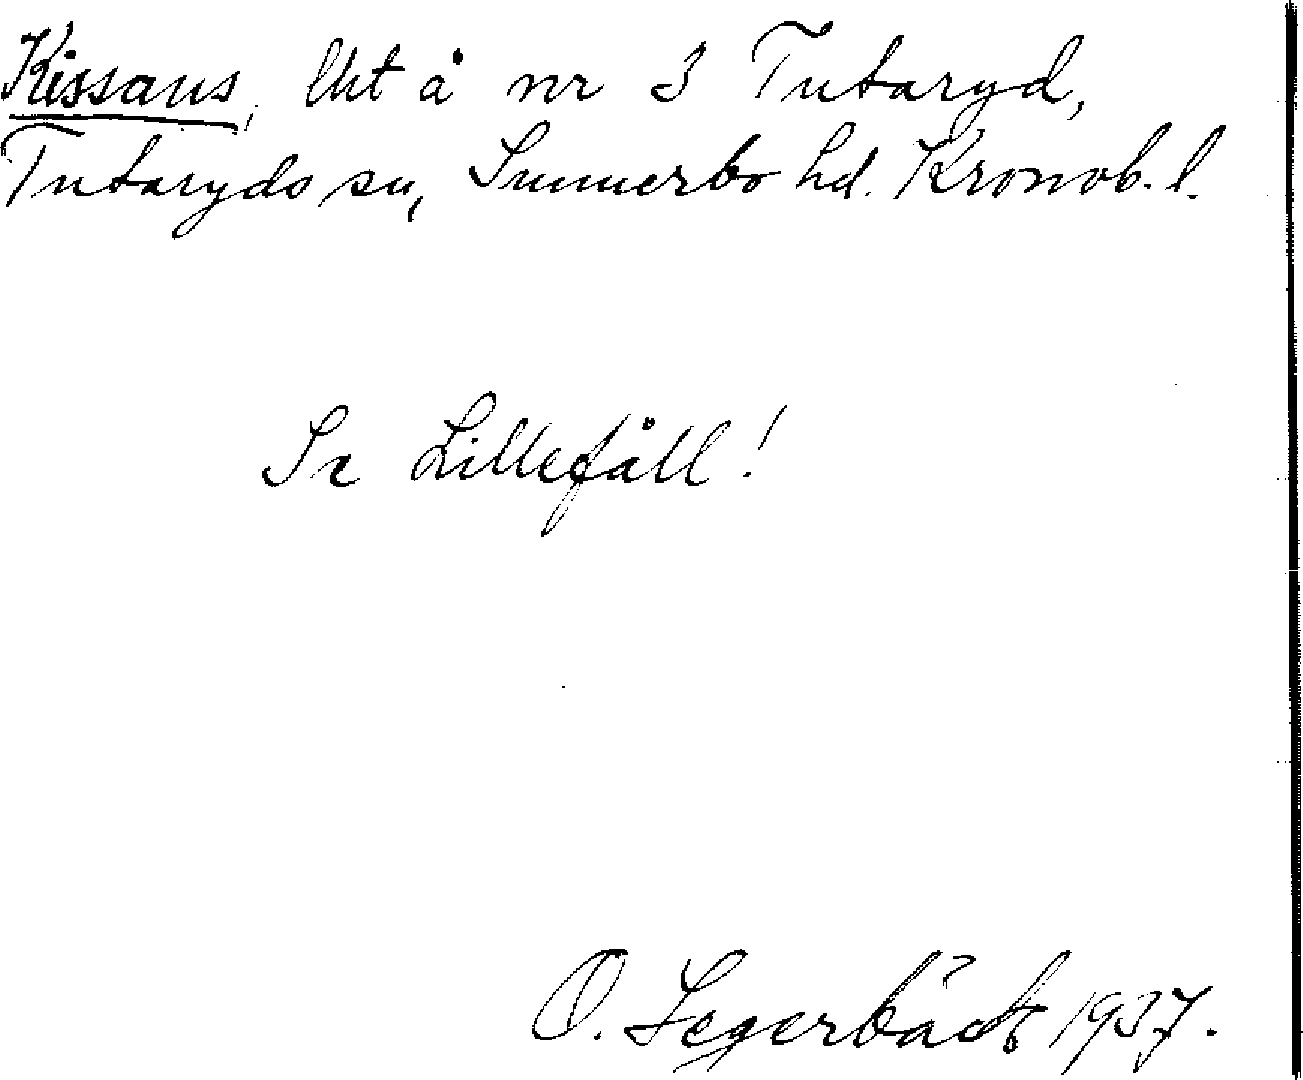 Kissans, lht å nr 3 Tutaryd,
Tutaryds sn, Sunnerbo hd. Kronob. l.
Se Lillefåll!
O. Segerbäck 1937.